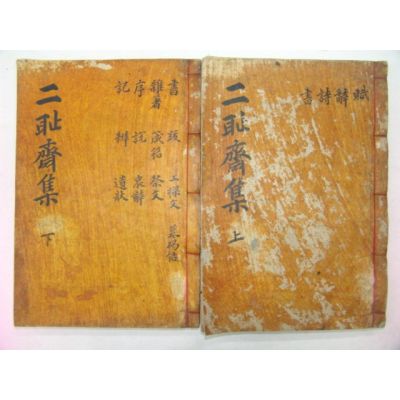 二恥齋集
上
賦
辭
詩
書
二恥齋集
下
書 跋 上樑文 墓碣銘
雜著 箴銘 祭文
序 說 哀辭
記 辨 遺狀